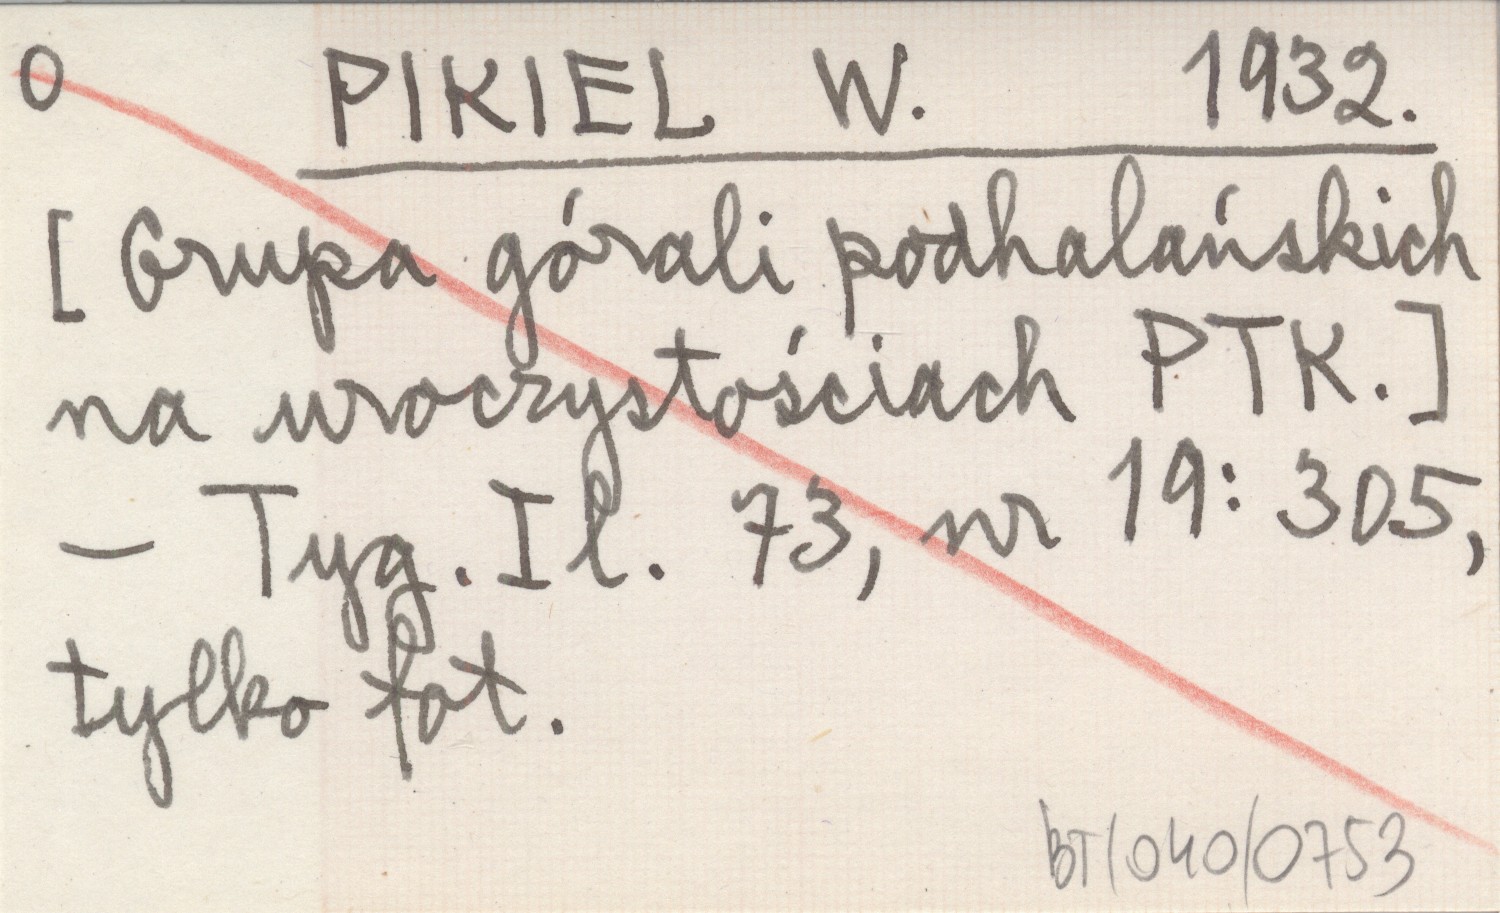 O PIKIEL W. 1932.
[Grupa górali podhalańskich
na uroczystościach PTK.]
— Tyg. Il. 73, nr 19: 305,
tylko fot.
BT/040/0753